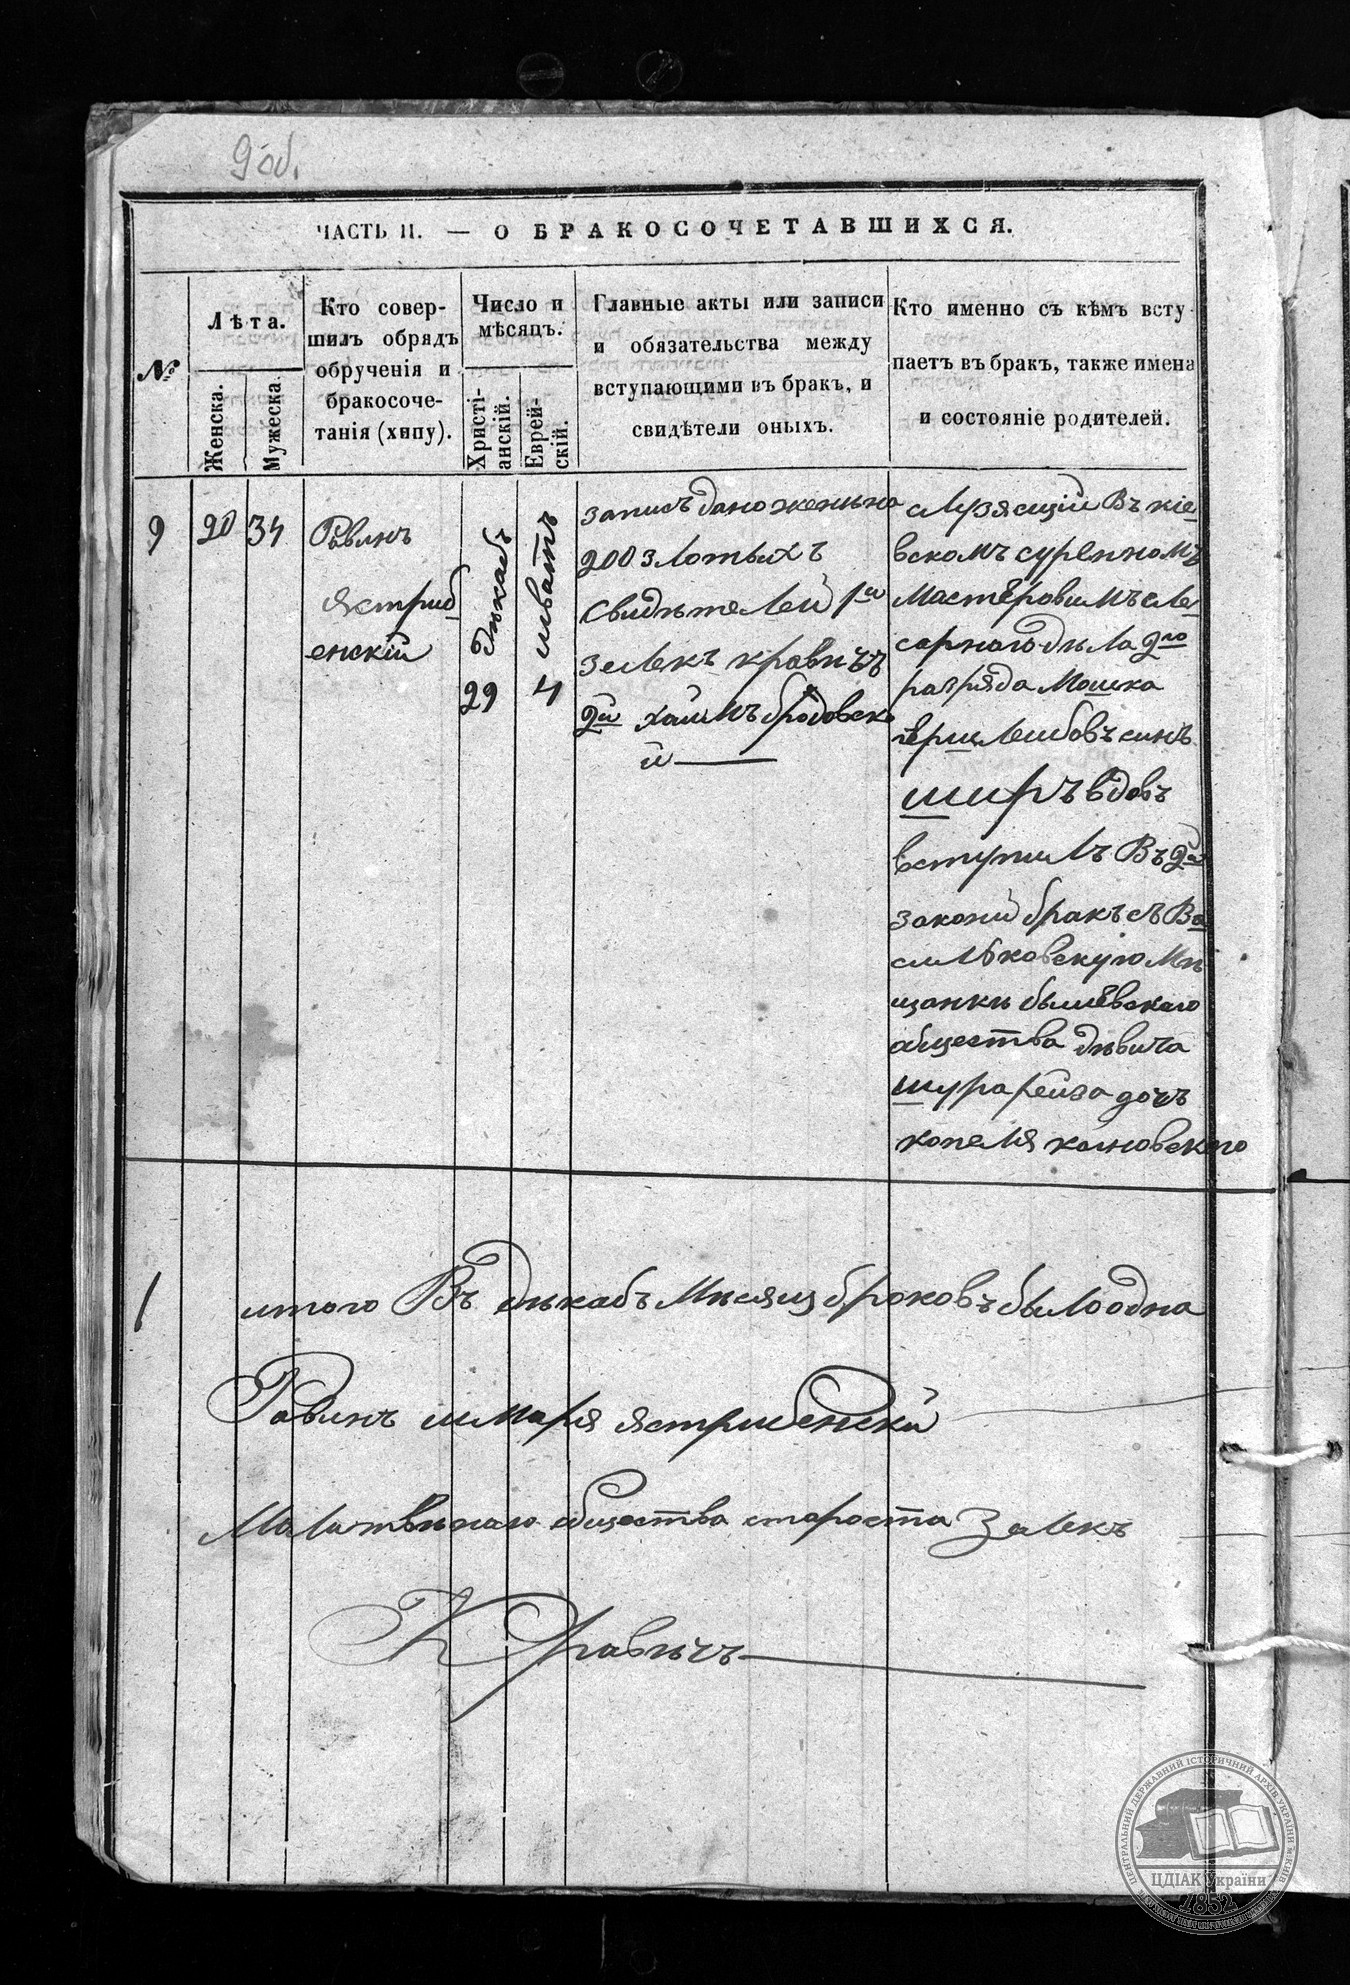 9 об.
ЧАСТЬ II. — О БРАКОСОЧЕТАВШИХСЯ.
№
Лѣта.
Женска.
Мужеска.
Кто совер-
шилъ обрядъ
обрученія и
бракосоче-
танія (хупу).
Число и
мѣсяцъ.
Христі-
анскій.
Еврей-
скій.
Главные акты или записи
и обязательства между
вступающими въ бракъ, и
свидѣтели оныхъ.
Кто именно съ кѣмъ всту
паетъ въ бракъ, также имена
и состояніе родителей.
9
20
34
Равинъ
Ястриб
енскій
дѣкабъ
29
шватъ
4
запись дано жены на
200 злотыхъ
свидѣтелей 1й
Зелекъ Кравичъ
2й Хаимъ Бродовско
й
служащій Въ кіе
вскомъ
мастеровимъ сле
сарного дѣла 2го
разряда Мошка
Герш Лейбовъ синъ
Ширъ вдовъ
вступилъ Въ 2й
закони бракъ съ Ва
силковскую мѣ
щанки
общества дѣвича
Шура Рейза дочъ
Копеля
1
итого Въ дѣкабъ мѣсяц браковъ было одна
Равинъ Шмаря Ястрибенскій
общества староста Зелекъ
Кравичъ
ЦЕНТРАЛЬНИЙ ДЕРЖАВНИЙ ІСТОРИЧНИЙ АРХІВ УКРАЇНИ М.КИЇВ
ЦДІАК України
1852